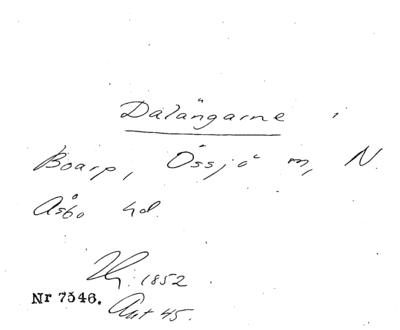 Dalängarne i
Boarp, Össjö sn, N.
Åsbo hd.
Hj. 1852
Nr 7546. Akt 45.